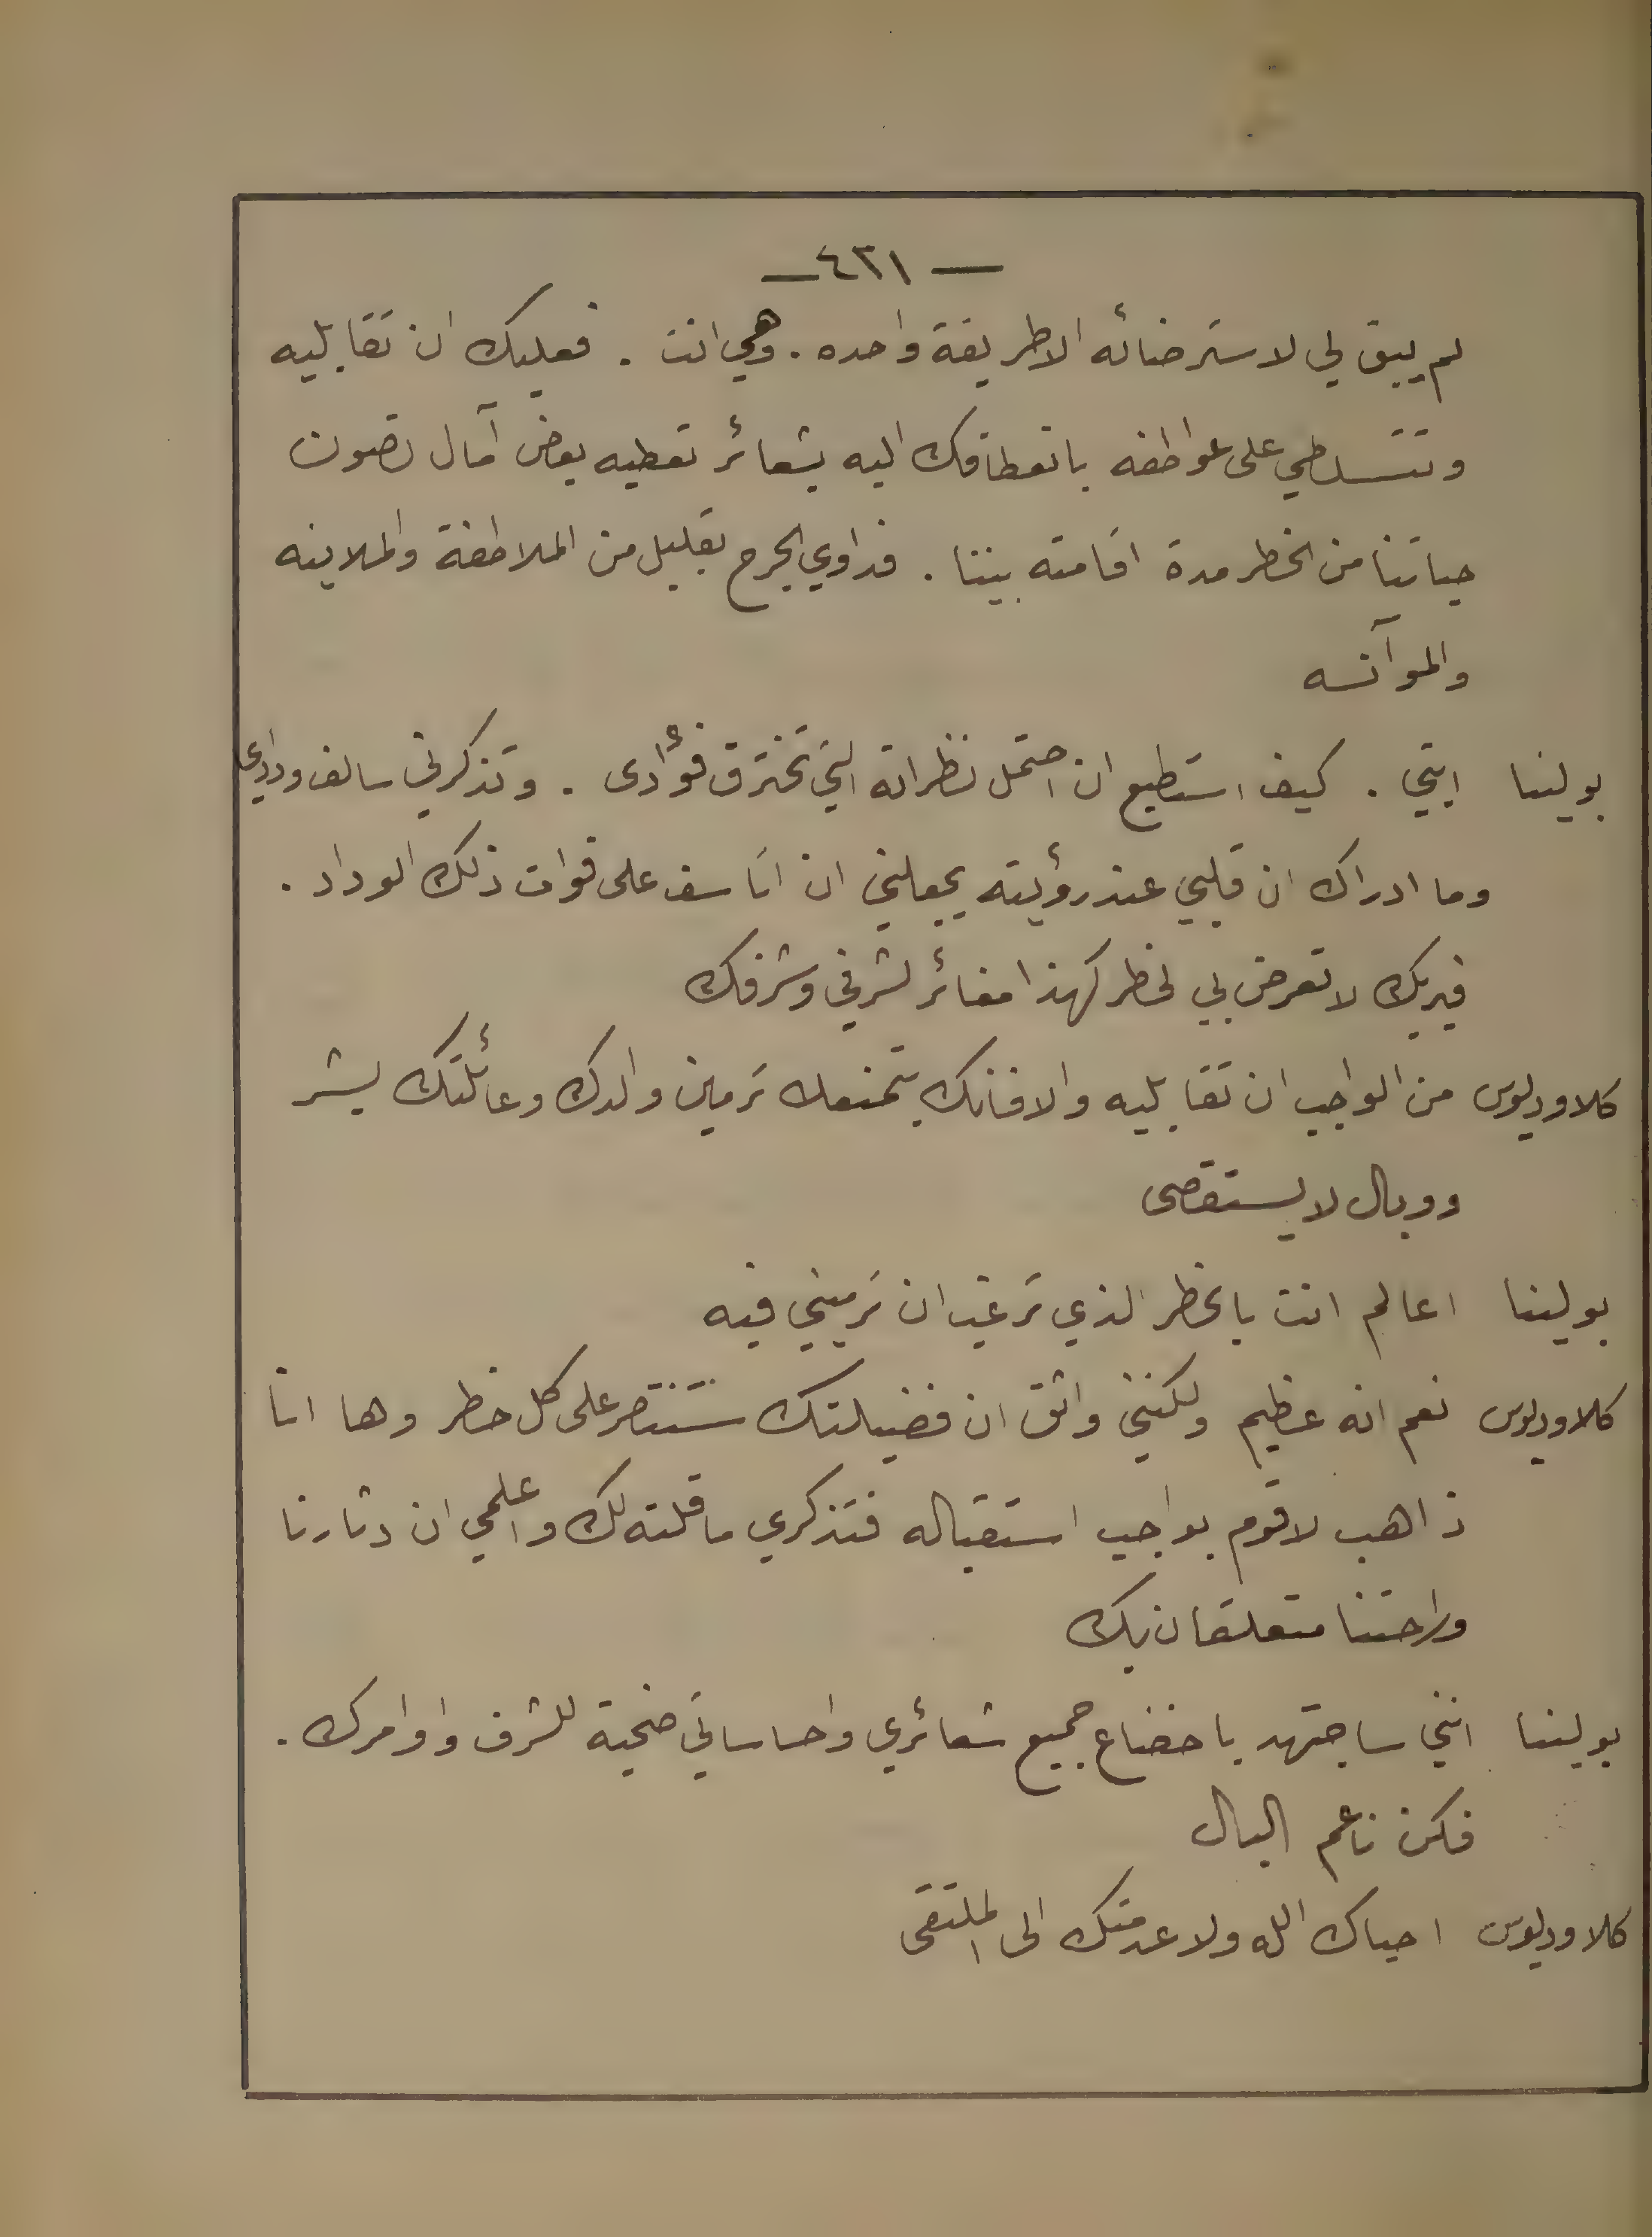 — ٤٢١ —
لم يبق لي لاسترضائه الا طريقة واحده . وهي انت . فعليك ان تقابليه
وتتسلطي على عواطفه بانعطافك اليه بشعائر تعطيه بعض آمال تصون
حياتنا من الخطر مدة اقامته بيننا . فداوي الجرح بقليل من الملاطفة والملاينه
والموآنسه
بولينا ابتي . كيف استطيع ان احتمل نظراته التي تخترق فؤادى . وتذكرني سالف ودادي
وما ادراك ان قلبي عند رؤيته يجعلني ان اتاسف على فوات ذلك الوداد .
فبربك لا تعرض بي لخطر كهذا مغائر لشرفي وشرفك
كلاوديوس من الواجب ان تقابليه والا فانك بتمنعك ترمين والدك وعائلتك بشر
ووبال لا يستقصى
بولينا اعالم انت بالخطر الذي ترغب ان ترميني فيه
كلاوديوس نعم انه عظيم ولكنني واثق ان فضيلتك ستنتصر على كل خطر وها انا
ذاهب لاقوم بواجب استقباله فتذكري ما قلته لك واعلمي ان دثارنا
وراحتنا متعلقان بك
بولينا انني ساجتهد باخضاع جميع شعائري واحساساتي ضحية للشرف واوامرك .
فكن ناعم البال
كلاوديوس احياك الله ولا عدمتك الى الملتقى